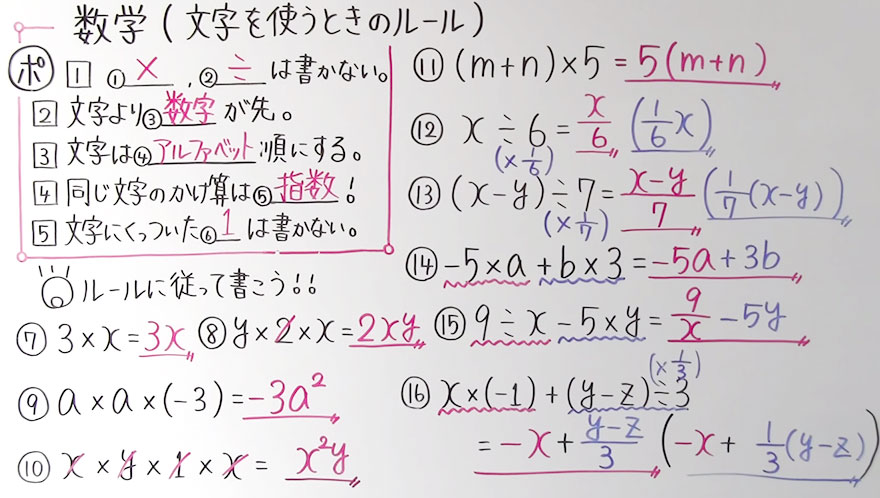 数学(文字を使うときのルール)
ポ 1 ①×,②÷は書かない。
2 文字より③数字が先。
3 文字は④アルファベット順にする。
4 同じ文字のかけ算は⑤指数!
5 文字にくっついた⑥1は書かない。
ルールに従って書こう!!
⑦ 3×x=3x ⑧ y×2×x=2xy
⑨ a×a×(-3)=-3a²
⑩ x×y×1×x= x²y
⑪ (m+n)×5=5(m+n)
⑫ x÷6=x/6 (1/6 x)
(×1/6)
⑬ (x-y)÷7=x-y/7 (1/7(x-y))
(×1/7)
⑭ -5×a+b×3=-5a+3b
⑮ 9÷x-5×y=9/x-5y
(×1/3)
⑯ x×(-1)+(y-z)÷3
=-x+y-z/3 (-x+1/3(y-z))